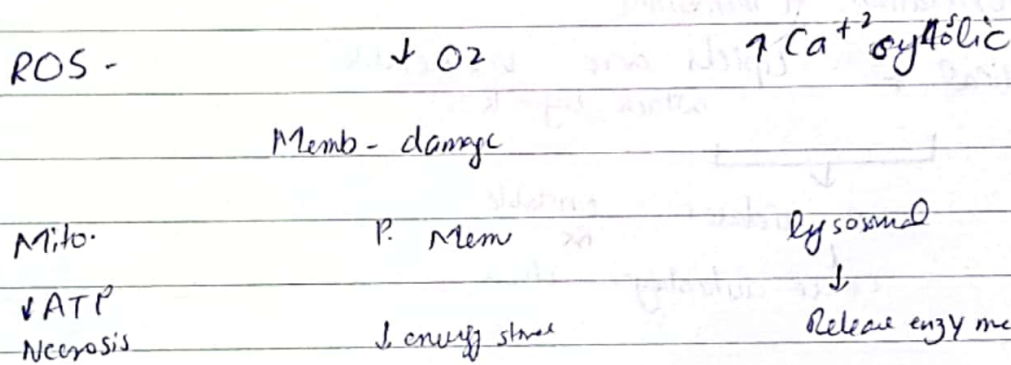 ROS - ↓ O2 ↑ Ca+2 cytsolic
Memb - damage
Mito. P. Mem lysosomal
↓ATP ↓
Necrosis ↓ energy Release enzyme